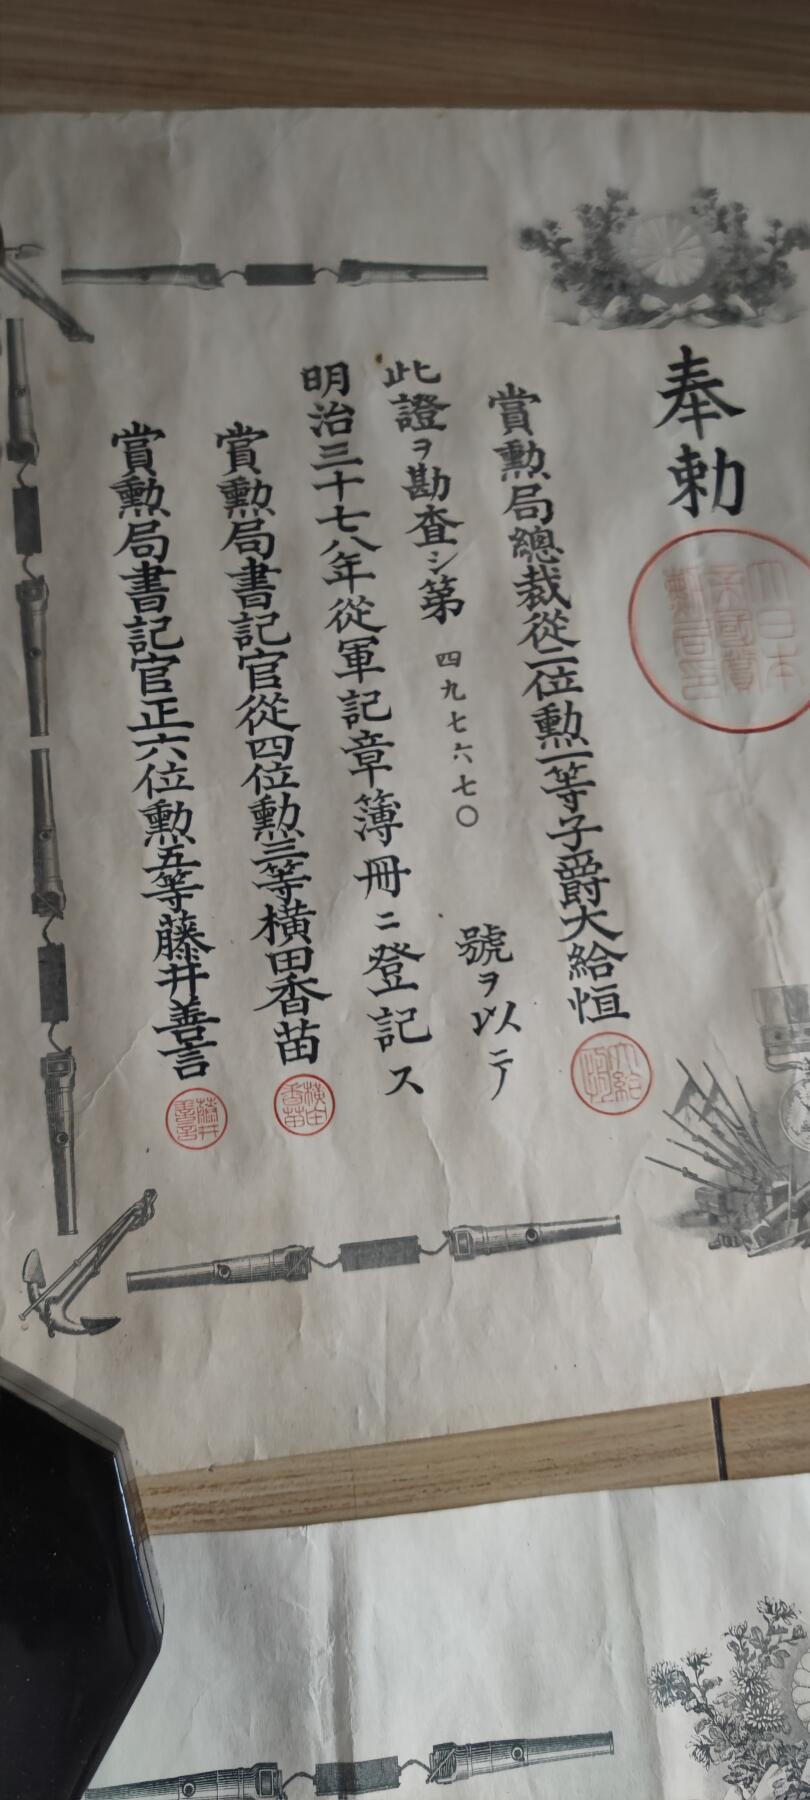 奉勅
大日本帝國賞勲局印
賞勲局總裁從二位勲一等子爵大給恒
大給恒
此證ヲ勘査シ第四九七六七〇號ヲ以テ
明治三十七八年從軍記章簿冊ニ登記ス
賞勲局書記官從四位勲三等横田香苗
横田香苗
賞勲局書記官正六位勲五等藤井善言
藤井善言